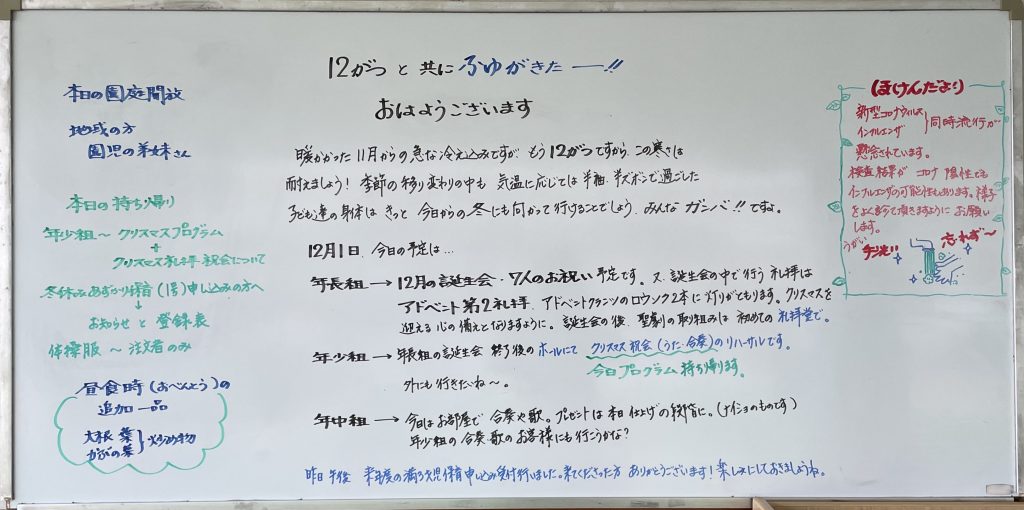 12がつ と 共に ふゆがきたー!!
おはようございます
本日の園庭開放
地域の方
園児の弟妹さん
本日の持ち帰り
年少組〜 クリスマスプログラム
+
クリスマス礼拝・祝会について
冬休みあずかり保育(1号)申し込みの方へ
↓
お知らせ と 登録表
体操服 〜 注文者のみ
昼食時(おべんとう)の
追加一品
大根葉
かぶの葉 } 炒め物
暖かかった 11月からの急な冷え込みですが、もう12がつですから、この寒さは
耐えましょう! 季節の移り変わりの中も 気温に応じては 半袖・半ズボンで過ごした
子ども達の身体は きっと 今日からの 冬にも向かって行けることでしょう。みんな ガンバ!!ですよ。
12月1日、今日の予定は…
年長組 → 12月の誕生会・7人のお祝い 予定です。又、誕生会の中で行う 礼拝は
アドベント第2礼拝、アドベントクランツのロウソク2本に 灯りがともります。クリスマスを
迎える心の備えとなりますように。誕生会の後、聖劇の取り組みは 初めての 礼拝堂で。
年少組 → 年長組の誕生会 終了後の ホールにて クリスマス祝会(うた・合奏)のリハーサルです。
今日プログラム 持ち帰ります。
外にも行きたいね〜。
年中組 → 今日はお部屋で 合奏や歌。プレゼントは本日 仕上げの段階に。(ナイショのものです)
年少組の 合奏・歌のお客様にも 行こうかな?
昨日 午後 来年度の満3才児保育申し込み受付行いました。来てくださった方 ありがとうございます!楽しみにしておきましょうね。
(ほけんだより)
新型コロナウィルス
インフルエンザ } 同時流行が
懸念されています。
検査結果が コロナ 陽性でも
インフルエンザの可能性もあります。様子
をよくみて頂きますように お願い
します。
うがい
手洗い
忘れず〜